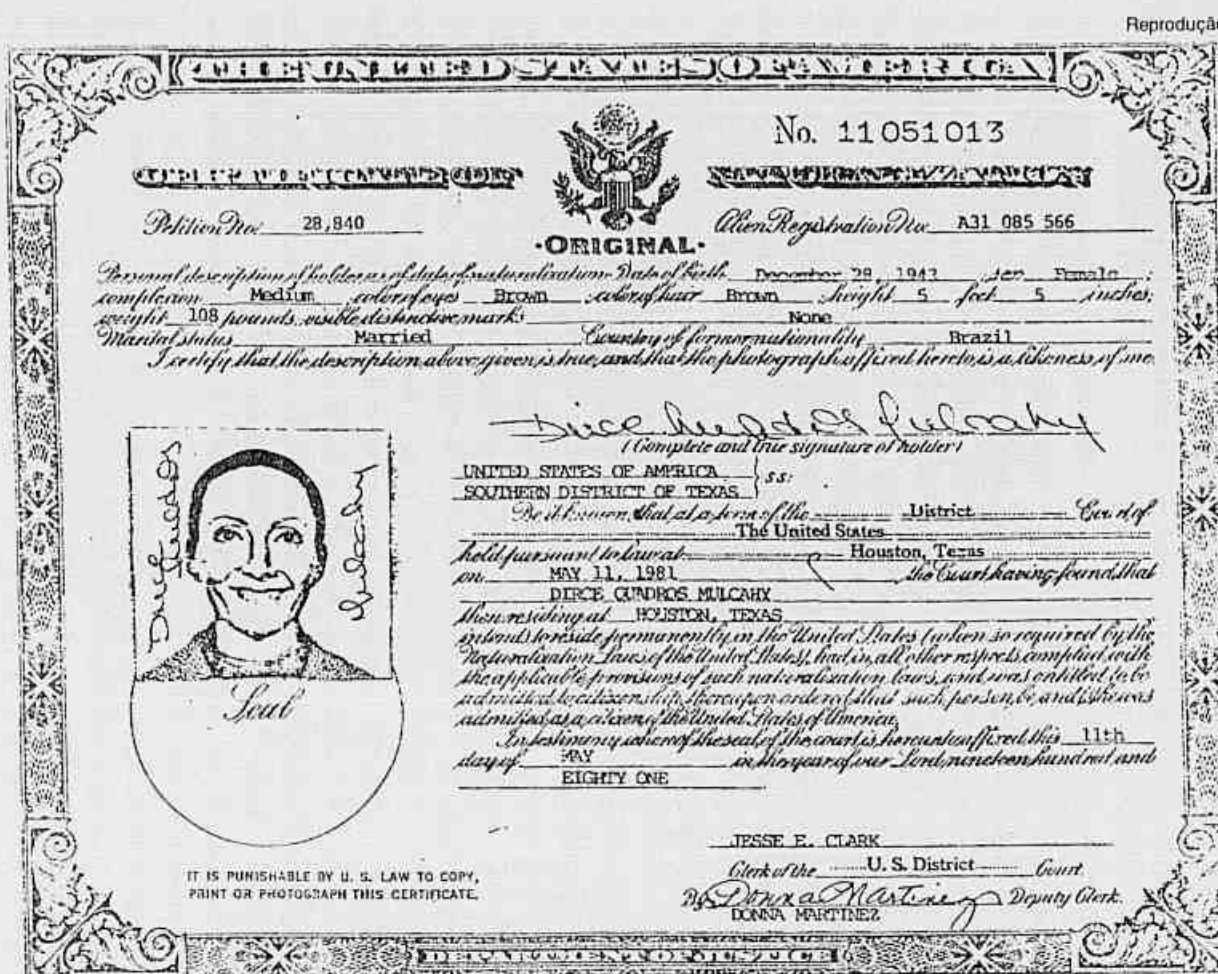 Reprodução
THE UNITED STATES OF AMERICA
No. 11051013
Petition No. 28,840
Alien Registration No. A31 085 566
·ORIGINAL·
Personal description of holder as of date of naturalization: Date of birth December 28, 1943 sex Female ;
complexion Medium color of eyes Brown color of hair Brown height 5 feet 5 inches;
weight 108 pounds, visible distinctive marks None
Marital status Married Country of former nationality Brazil
I certify that the description above given is true, and that the photograph affixed hereto is a likeness of me.
Dirce Quadros Mulcahy
(Complete and true signature of holder)
Dirce Quadros Mulcahy
Seal
UNITED STATES OF AMERICA
SOUTHERN DISTRICT OF TEXAS } ss:
Be it known, that at a term of the District Court of
The United States
held pursuant to law at Houston, Texas
on MAY 11, 1981 the Court having found that
DIRCE QUADROS MULCAHY
then residing at HOUSTON, TEXAS
intends to reside permanently in the United States (when so required by the
Naturalization Laws of the United States), had in all other respects complied with
the applicable provisions of such naturalization laws, and was entitled to be
admitted to citizenship, thereupon ordered that such person be and (s)he was
admitted as a citizen of the United States of America.
In testimony whereof the seal of the court is hereunto affixed this 11th
day of MAY in the year of our Lord nineteen hundred and
EIGHTY ONE
JESSE E. CLARK
Clerk of the U. S. District Court.
By Donna Martinez Deputy Clerk.
DONNA MARTINEZ
IT IS PUNISHABLE BY U. S. LAW TO COPY,
PRINT OR PHOTOGRAPH THIS CERTIFICATE.
DEPARTMENT OF JUSTICE